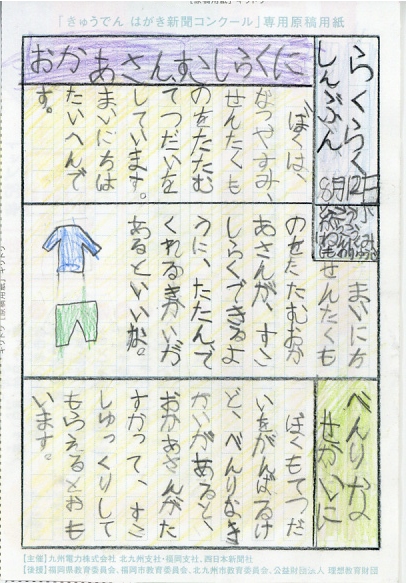 「きゅうでん はがき新聞コンクール」専用原稿用紙
らくらく
しんぶん
8月12日
おかあさん、すこしらくに
ぼくは、
なつやすみ、
せんたくも
のをたたむ
てつだいを
しています。
まいにちは
たいへんで
す。
まいにち
せんたくも
のをたたむおか
あさんが、すこ
しらくできるよ
うに、たたんで
くれるきかいが
あるといいな。
べんりな
せかいに
ぼくもてつだ
いをがんばるけ
ど、べんりなき
かいがあると、
おかあさんがた
すかって、すこ
しゆっくりして
もらえるとおも
います。
【主催】九州電力株式会社 北九州支社・福岡支社、西日本新聞社
【後援】福岡県教育委員会、福岡市教育委員会、北九州市教育委員会、公益財団法人 理想教育財団